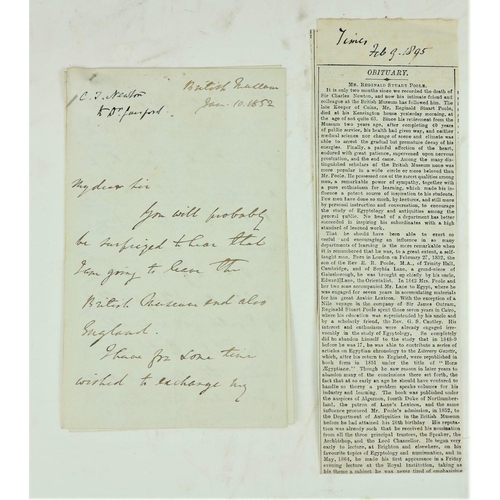 C. T. Newton
to Dr
British Museum
Jan. 10. 1852
My dear Sir
You will probably
be surprized to hear that
I am going to leave the
British Museum and also
England.
I have for some time
wished to exchange my
Times
Feb 9. 1895
OBITUARY.
MR. REGINALD STUART POOLE.
It is only two months since we recorded the death of
Sir Charles Newton, and now his intimate friend and
colleague at the British Museum has followed him. The
late Keeper of Coins, Mr. Reginald Stuart Poole,
died at his Kensington house yesterday morning, at
the age of not quite 63. Since his retirement from the
Museum two years ago, after completing 40 years
of public service, his health had given way, and neither
medical science nor change of scene and climate was
able to arrest the gradual but premature decay of his
energies. Finally, a painful affection of the heart,
endured with great patience, supervened upon nervous
prostration, and the end came. Among the many dis-
tinguished scholars of the British Museum none was
more popular in a wide circle or more beloved than
Mr. Poole. He possessed one of the rarest qualities among
men, a remarkable power of sympathy, together with
a pure enthusiasm for learning, which made his in-
fluence a potent source of inspiration to his students.
Few men have done so much, by lectures, and still more
by personal instruction and conversation, to encourage
the study of Egyptology and antiquities among the
general public. No head of a department has better
succeeded in inspiring his subordinates with a high
standard of learned work.
That he should have been able to exert so
useful and encouraging an influence in so many
departments of learning is the more remarkable when
it is remembered that he was, to a great extent, a self-
taught man. Born in London on February 27, 1832, the
son of the Rev. E. R. Poole, M.A., of Trinity Hall,
Cambridge, and of Sophia Lane, a grand-niece of
Gainsborough, he was brought up chiefly by his uncle,
Edward Lane, the Orientalist. In 1842 Mrs. Poole and
her two sons accompanied Mr. Lane to Egypt, where he
was engaged for seven years in accumulating materials
for his great Arabic Lexicon. With the exception of a
Nile voyage in the company of Sir James Outram,
Reginald Stuart Poole spent those seven years in Cairo,
where his education was superintended by his uncle and
by a scholarly friend, the Rev. G. S. Cautley. His
interest and enthusiasm were already engaged irre-
vocably in the study of Egyptology. So completely
did he abandon himself to the study that in 1848-9
before he was 17, he was able to contribute a series of
articles on Egyptian chronology to the Literary Gazette,
which, after his return to England, were republished in
book form in 1851 under the title of "Horæ
Ægyptiacæ." Though he saw reason in later years to
abandon many of the conclusions there set forth, the
fact that at so early an age he should have ventured to
handle so thorny a problem speaks volumes for his
industry and learning. The book was published under
the auspices of Algernon, fourth Duke of Northumber-
land, the patron of Lane's Lexicon, and the same
influence procured Mr. Poole's admission, in 1852, to
the Department of Antiquities in the British Museum
before he had attained his 20th birthday. His reputation
was already such that he received his nomination
from all the three principal trustees, the Speaker, the
Archbishop, and the Lord Chancellor. He began very
early to lecture, at Brighton and elsewhere, on his
favourite topics of Egyptology and numismatics, and in
May, 1864, he made his first appearance in a Friday
evening lecture at the Royal Institution, taking as
his theme a subject he was never tired of emphasizing